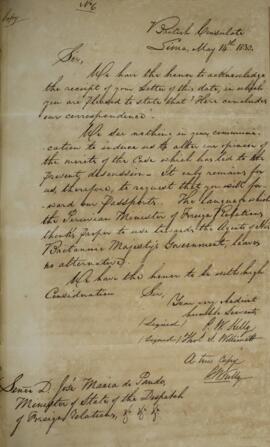 Copy
No 6
British Consulate
Lima, May 14th 1830.
Sir,
We have the honor to acknowledge
the receipt of your Letter of this date, in which
you are pleased to state that "Here concludes
our correspondence".
We see nothing in your communi-
cation to induce us to alter our opinion of
the merits of the Case which has led to the
present discussion. It only remains for
us, therefore, to request that you will for-
ward our Passports. The language which
the Peruvian Minister of Foreign Relations
thinks proper to use towards the Agents of His
Britannic Majesty's Government, leaves
no alternative.
We have the honor to be with high
Consideration Sir,
Your very obedient
humble Servants
(Signed) P. W. Kelly
(Signed) Thos. S. Willimott
A true Copy
PWKelly
Senor D. José Maria de Pando,
Minister of State of the Despatch
of Foreign Relations, &c &c &c